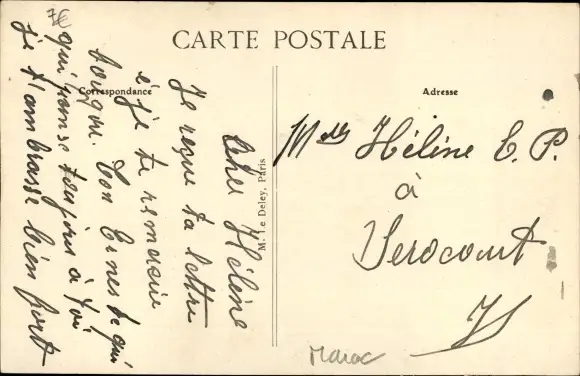 7€
CARTE POSTALE
Correspondance
Adresse
Cher Hélène
Je reçue ta lettre
é je te remersie
boucqu. Ton Ernes te qui
qui panse toujour à toi
je t'ambrasse bien fort
M. Le Deley, Paris
Mlle Hélène E. P.
à
Serocourt
Maroc